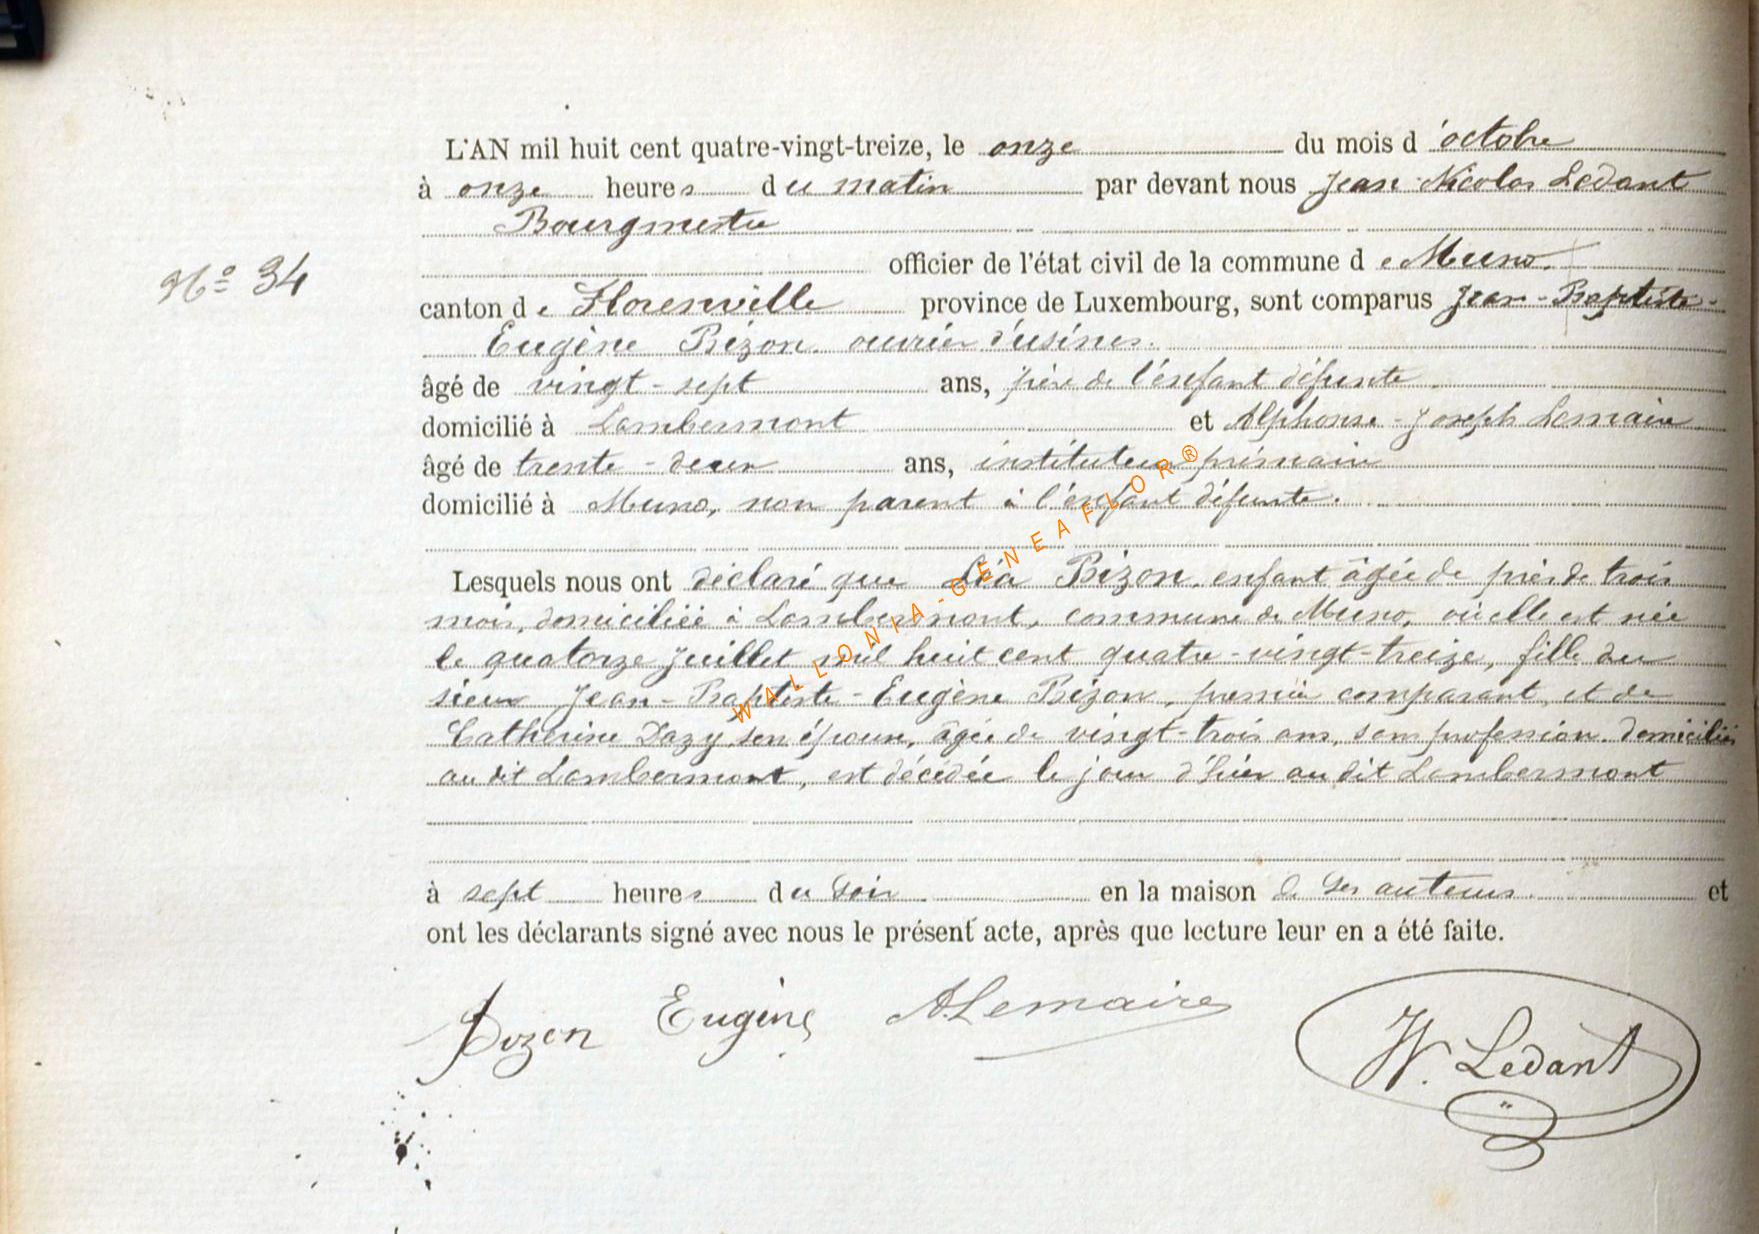 L'AN mil huit cent quatre-vingt-treize, le onze du mois d'octobre
à onze heures du matin par devant nous Jean-Nicolas Ledant
Bourgmestre
officier de l'état civil de la commune de Muno,
N° 34
canton de Florenville province de Luxembourg, sont comparus Jean-Baptiste-
Eugène Bizon, ouvrier d'usines.
âgé de vingt-sept ans, père de l'enfant défunte
domicilié à Lambermont et Alphonse-Joseph Lemaire
âgé de trente-deux ans, instituteur primaire
domicilié à Muno, non parent à l'enfant défunte.
Lesquels nous ont déclaré que Léa Bizon, enfant âgée de près de trois
mois, domiciliée à Lambermont, commune de Muno, où elle est née
le quatorze Juillet mil huit cent quatre-vingt-treize, fille du
sieur Jean-Baptiste-Eugène Bizon, premier comparant, et de
Catherine Dazy, son épouse, âgée de vingt-trois ans, sans profession, domiciliés
au dit Lambermont, est décédée le jour d'hier au dit Lambermont
à sept heures du soir en la maison de ses auteurs et
ont les déclarants signé avec nous le présent acte, après que lecture leur en a été faite.
Bizon Eugène ALemaire N. Ledant
WALLONIA-GENEAFLOR®